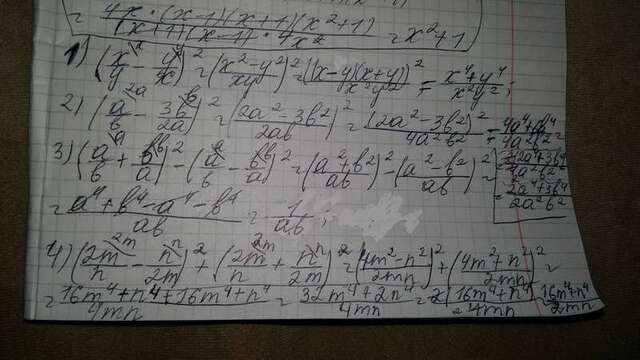 = 4x·(x-1)(x+1)(x²+1) / (x+1)(x-1)·4x² = x²+1
1) (x/y - y/x)² = (x²-y²/xy)² = ((x-y)(x+y))²/x²y² = x⁴+y⁴/x²y²;
2) (a/b - 3b/2a)² = (2a²-3b²/2ab)² = (2a²-3b²)²/4a²b² =
3) (a/b + b/a)² - (a/b - b/a)² = (a²+b²/ab)² - (a²-b²/ab)² =
= a⁴+b⁴-a⁴-b⁴/ab = 1/ab;
2a⁴+3b⁴/2a²b²
4) (2m/n - n/2m)² + (2m/n + n/2m)² = (4m²-n²/2mn)² + (4m²+n²/2mn)² =
= 16m⁴+n⁴+16m⁴+n⁴/4mn = 32m⁴+2n⁴/4mn = 2(16m⁴+n⁴)/4mn = 16m⁴+n⁴/2mn